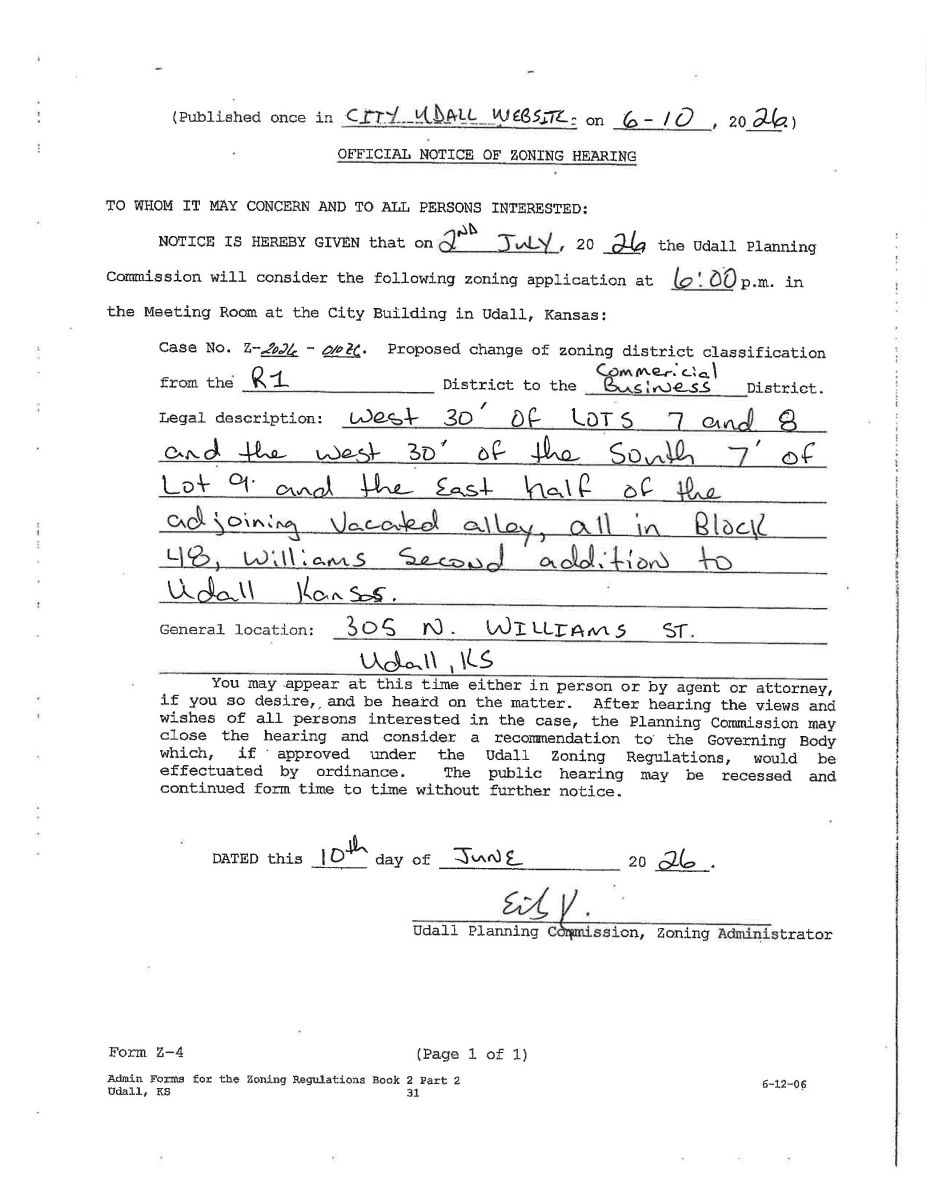 (Published once in CITY UDALL WEBSITE: on 6-10, 2026)
OFFICIAL NOTICE OF ZONING HEARING
TO WHOM IT MAY CONCERN AND TO ALL PERSONS INTERESTED:
NOTICE IS HEREBY GIVEN that on 2ND JULY, 20 26 the Udall Planning
Commission will consider the following zoning application at 6:00 p.m. in
the Meeting Room at the City Building in Udall, Kansas:
Case No. Z-2026 - Proposed change of zoning district classification
from the R1 District to the Commericial Business District.
Legal description: West 30' OF LOTS 7 and 8
and the west 30' of the South 7' of
Lot 9. and the East half of the
adjoining Vacated alley, all in Block
48, Williams Second addition to
Udall Kansas.
General location: 305 N. WILLIAMS ST.
Udall, KS
You may appear at this time either in person or by agent or attorney,
if you so desire, and be heard on the matter. After hearing the views and
wishes of all persons interested in the case, the Planning Commission may
close the hearing and consider a recommendation to the Governing Body
which, if approved under the Udall Zoning Regulations, would be
effectuated by ordinance. The public hearing may be recessed and
continued form time to time without further notice.
DATED this 10th day of JUNE 20 26.
Udall Planning Commission, Zoning Administrator
Form Z-4 (Page 1 of 1)
Admin Forms for the Zoning Regulations Book 2 Part 2
Udall, KS 31 6-12-06